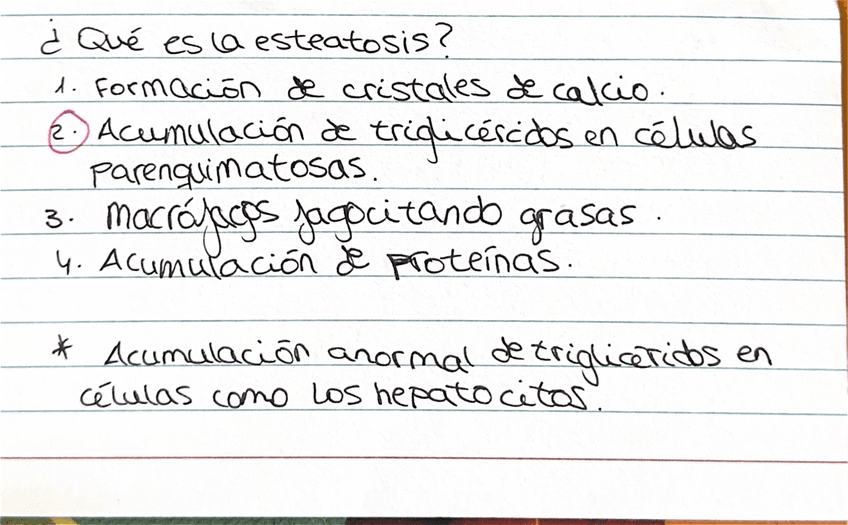 ¿Qué es la esteatosis?
1. Formación de cristales de calcio.
2. Acumulación de triglicéridos en células
parenquimatosas.
3. Macrófagos fagocitando grasas.
4. Acumulación de proteínas.
* Acumulación anormal de trigliceridos en
células como los hepatocitos.